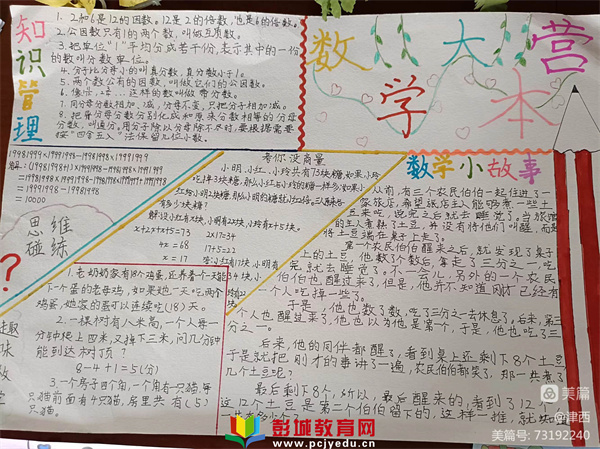 数学大本营
知识管理
1. 2和6是12的因数。12是2的倍数，也是6的倍数。
2. 公因数只有1的两个数，叫做互质数。
3. 把单位"1"平均分成若干份，表示其中的一份
的数叫分数单位。
4. 分子比分母小的叫真分数，真分数小于1。
5. 两个数公有的因数，叫做它们的公因数。
这样的数叫做带分数。
7. 同分母分数相加、减，分母不变，只把分子相加减。
8. 把异分母分数分别化成和原来分数相等的同分母
分数，叫通分。用分子除以分母除不尽时，要根据需要
按"四舍五入"法保留几位小数。
19981999×19991998-19981998×19991999
=19991998-19981998
=10000
思维
碰练
?
考你没商量
小明、小红、小玲共有73块糖，如果小玲
吃掉3块糖，那么小红与小玲的糖一样多，如果小
有多少块糖？
x+2x+x+5=73
4x=68
x=17
2X17=34
17+5=22
1. 老奶奶家有18个鸡蛋，还养着一天能
下一个蛋的老母鸡，如果她一天吃两个
鸡蛋，她家的蛋可以连续吃(18)天。
2. 一棵树有八米高，一个人每一
分钟爬上四米，又掉下三米，问几分钟
能到达树顶？
8-4+1=5(分)
3. 一个房子四个角，一个角有一只猫，每
只猫前面有4只猫，房里共有(5)
只猫。
数学小故事
从前，有三个农民伯伯一起住进了一
家旅店，希望旅店主人能够煮一些土
豆来吃，说完之后就去睡觉了。当旅馆
的主人煮熟了土豆，并没有将他们叫醒，而是
将土豆端在桌子上来了。
第一个农民伯伯醒来之后，就发现了桌子
上的土豆，他数了个数后，拿走了三分之一吃
完就去睡觉了。不一会儿，另外的一个农民
伯伯也醒过来了，但是，他并不知道刚才已经有
一个人吃掉一些了。
于是，他也数了数，吃了三分之一去休息了，后来，第三
个人也醒过来了，他也以为他是第一个，于是，他也吃了三
分之一。
后来，他的同伴都醒了，看到桌上还剩下8个土豆
于是就把刚才的事讲了一遍，农民伯伯都笑了，那一共煮了
几个土豆呢？
最后剩下8个，所以，最后醒来的，看到了12个
这12个土豆是第二个伯伯留下的，这样一推，就知道
彭城教育网
www.pcjyedu.cn
美篇
@津西
美篇号: 73192240